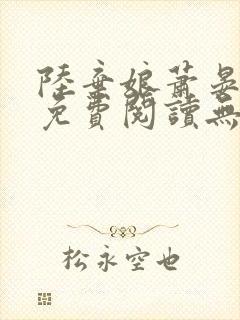 陸棄娘蕭晏
免費閱讀無
松永空也